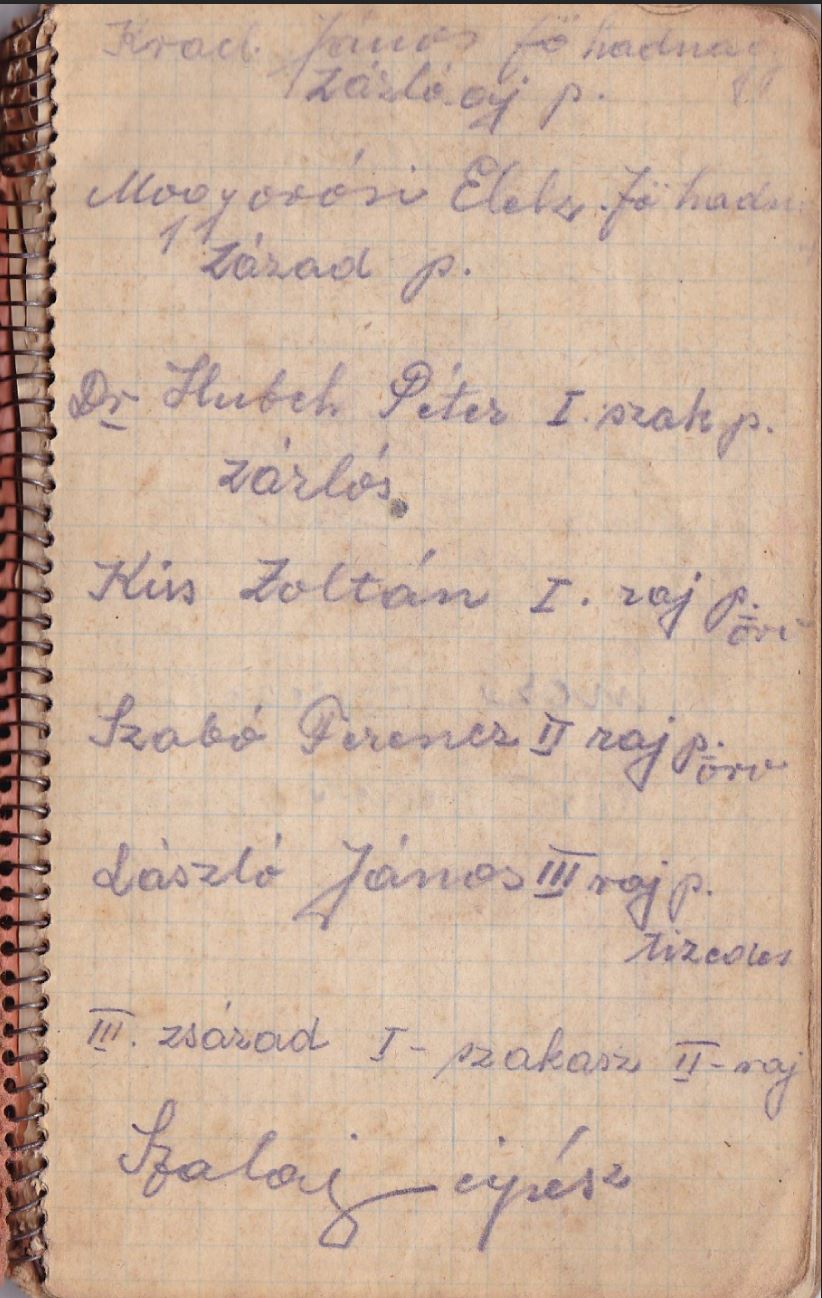 János főhadnagy
Zászlóaj p.
Mogyorósi Elek főhadn
Zászad p.
Dr Hubch Péter I. szak p.
zászlós
Kiss Zoltán I. raj p.
őrv
Szabó Ferencz II raj p.
őrv
László János III raj p.
tizedes
III. zsászad I - szakasz II - raj
Szalaj cipész